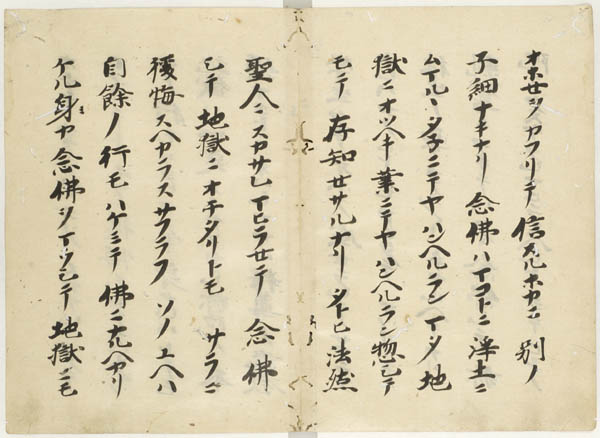 オホセヲカフリテ信スルホカニ別ノ
子細ナキナリ念佛ハマコトニ浄土ニ
ムマルヽタネニテヤハンヘルランマタ地
獄ニオツヘキ業ニテヤハンヘルラン惣シテ
モテ存知セサルナリタトヒ法然
聖人ニスカサレマヒラセテ念佛
シテ地獄ニオチタリトモサラニ
後悔スヘカラスサフラフソノユヘハ
自餘ノ行モハケミテ佛ニナルヘカリ
ケル身カ念佛ヲマフシテ地獄ニモ